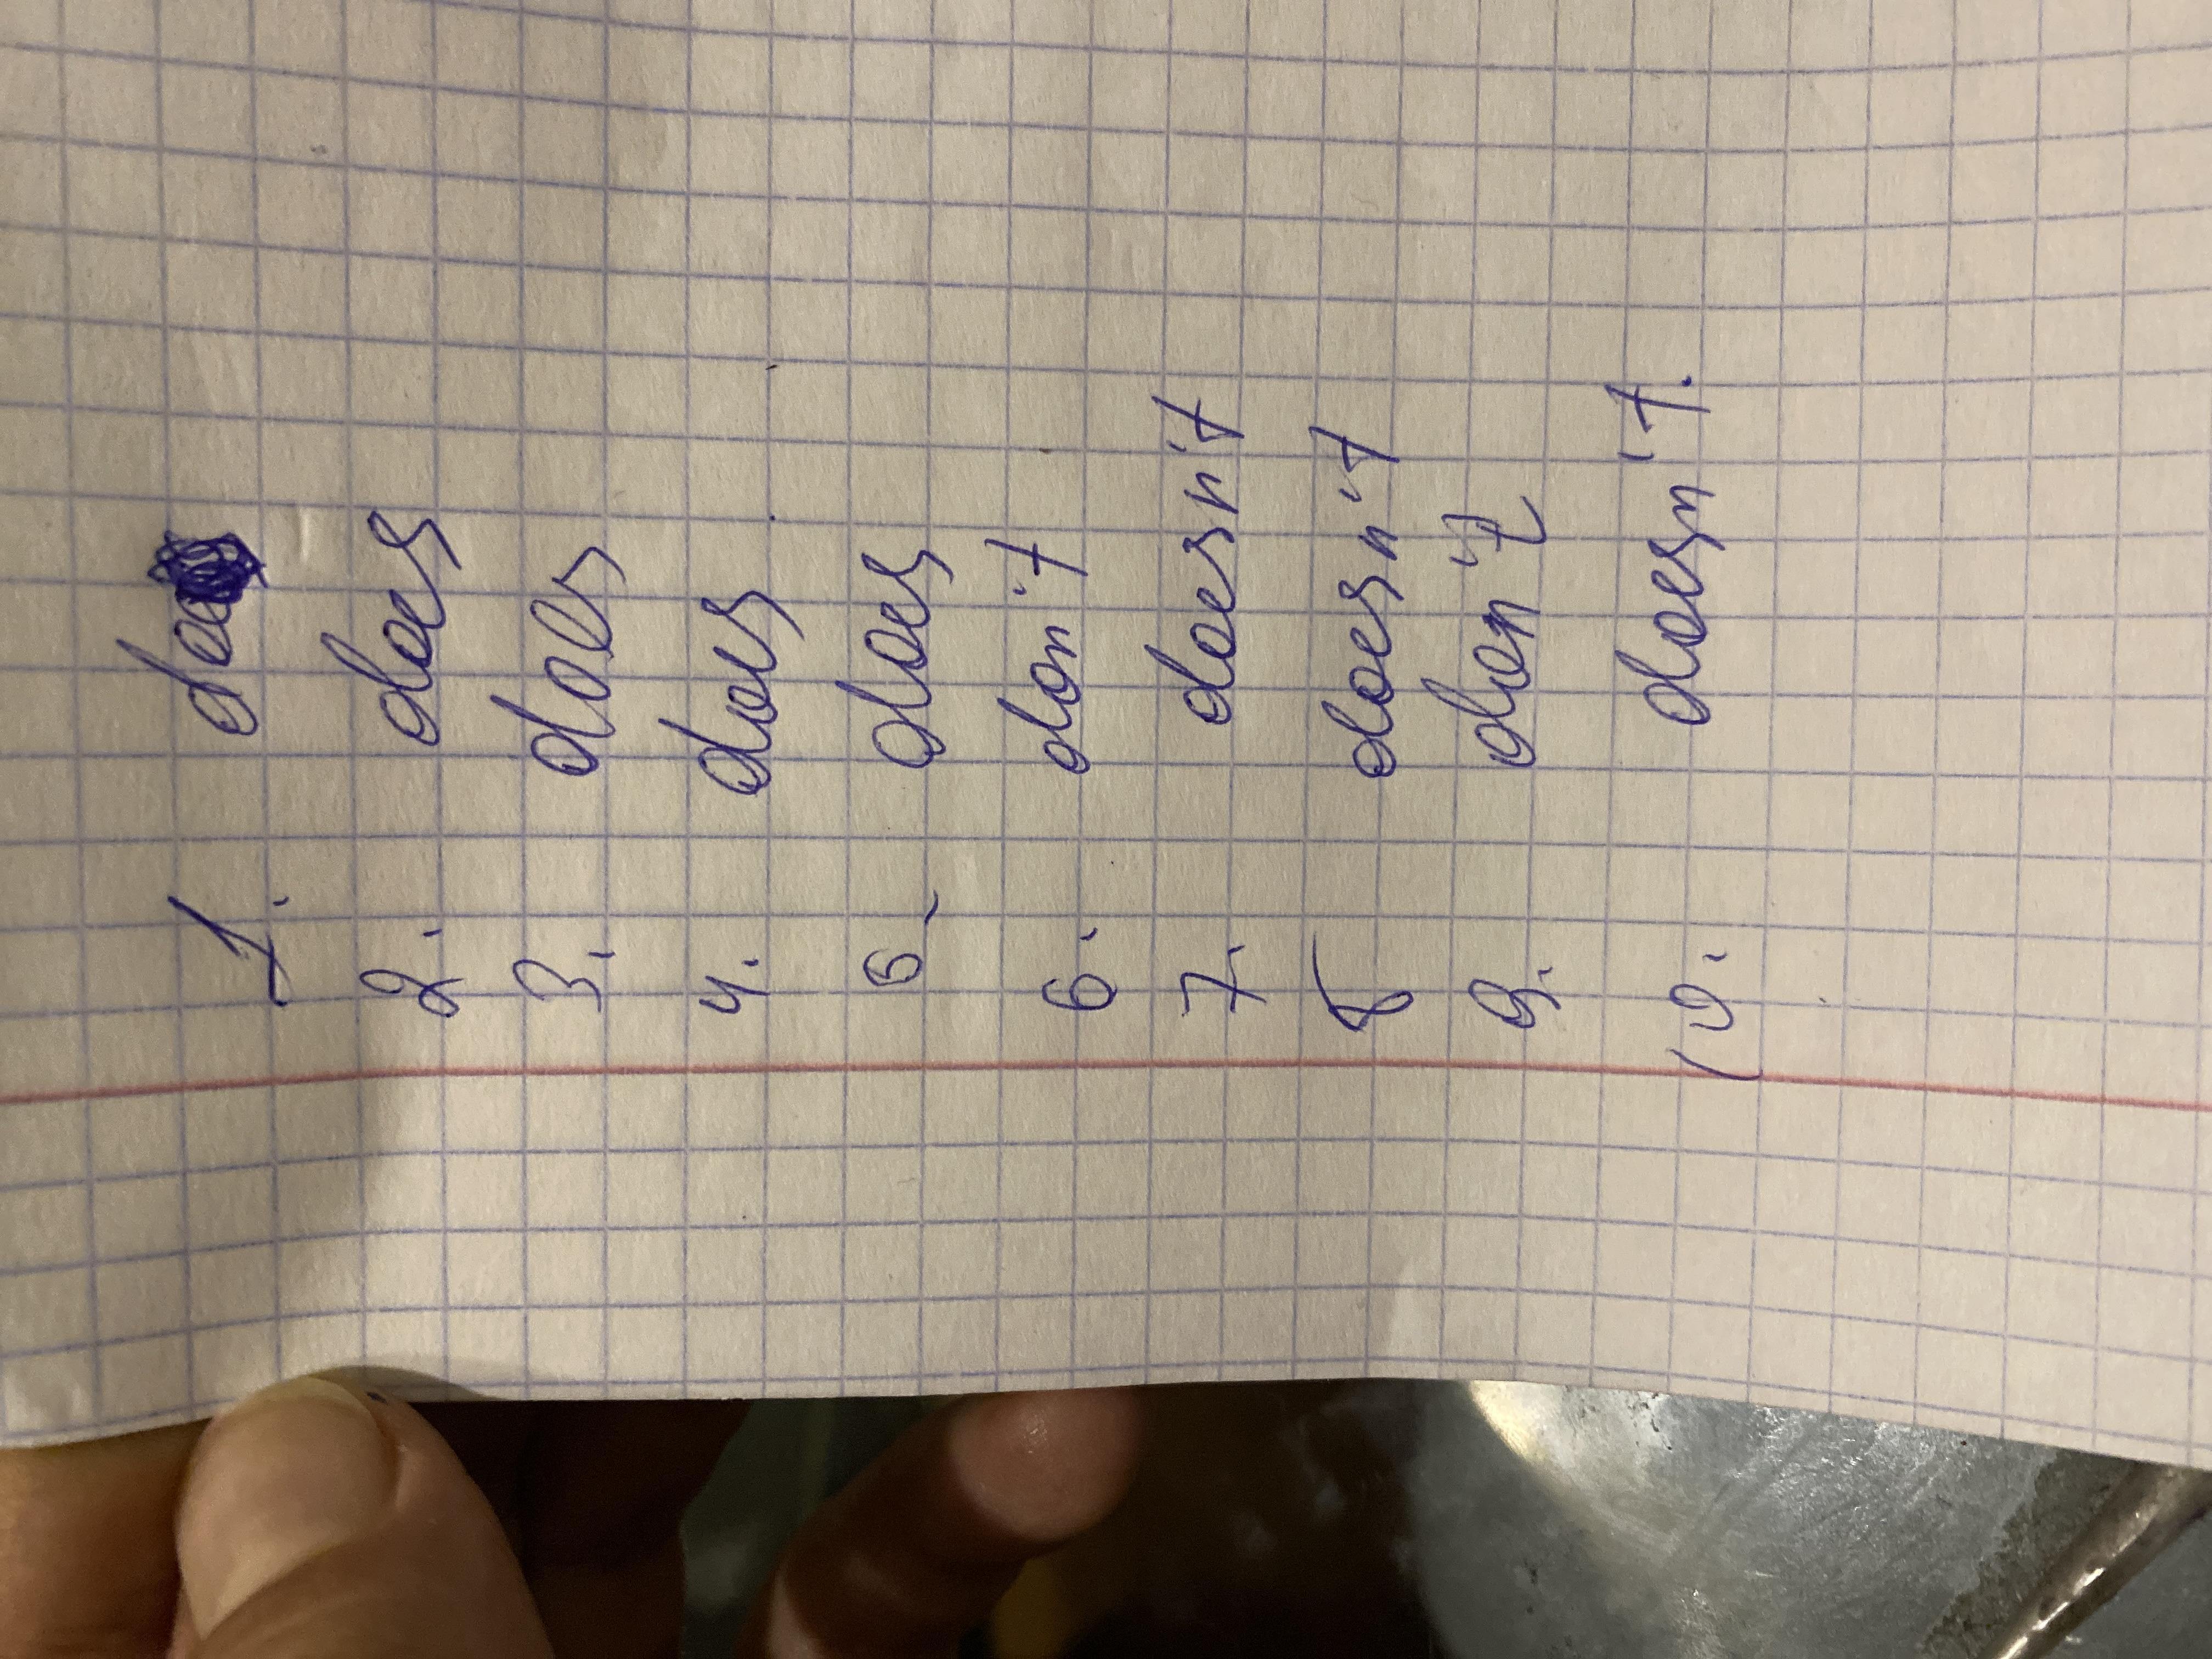 1. do
2. does
3. does
4. does
5. does
6. don't
7. doesn't
8 doesn't
9. don't
10. doesn't.